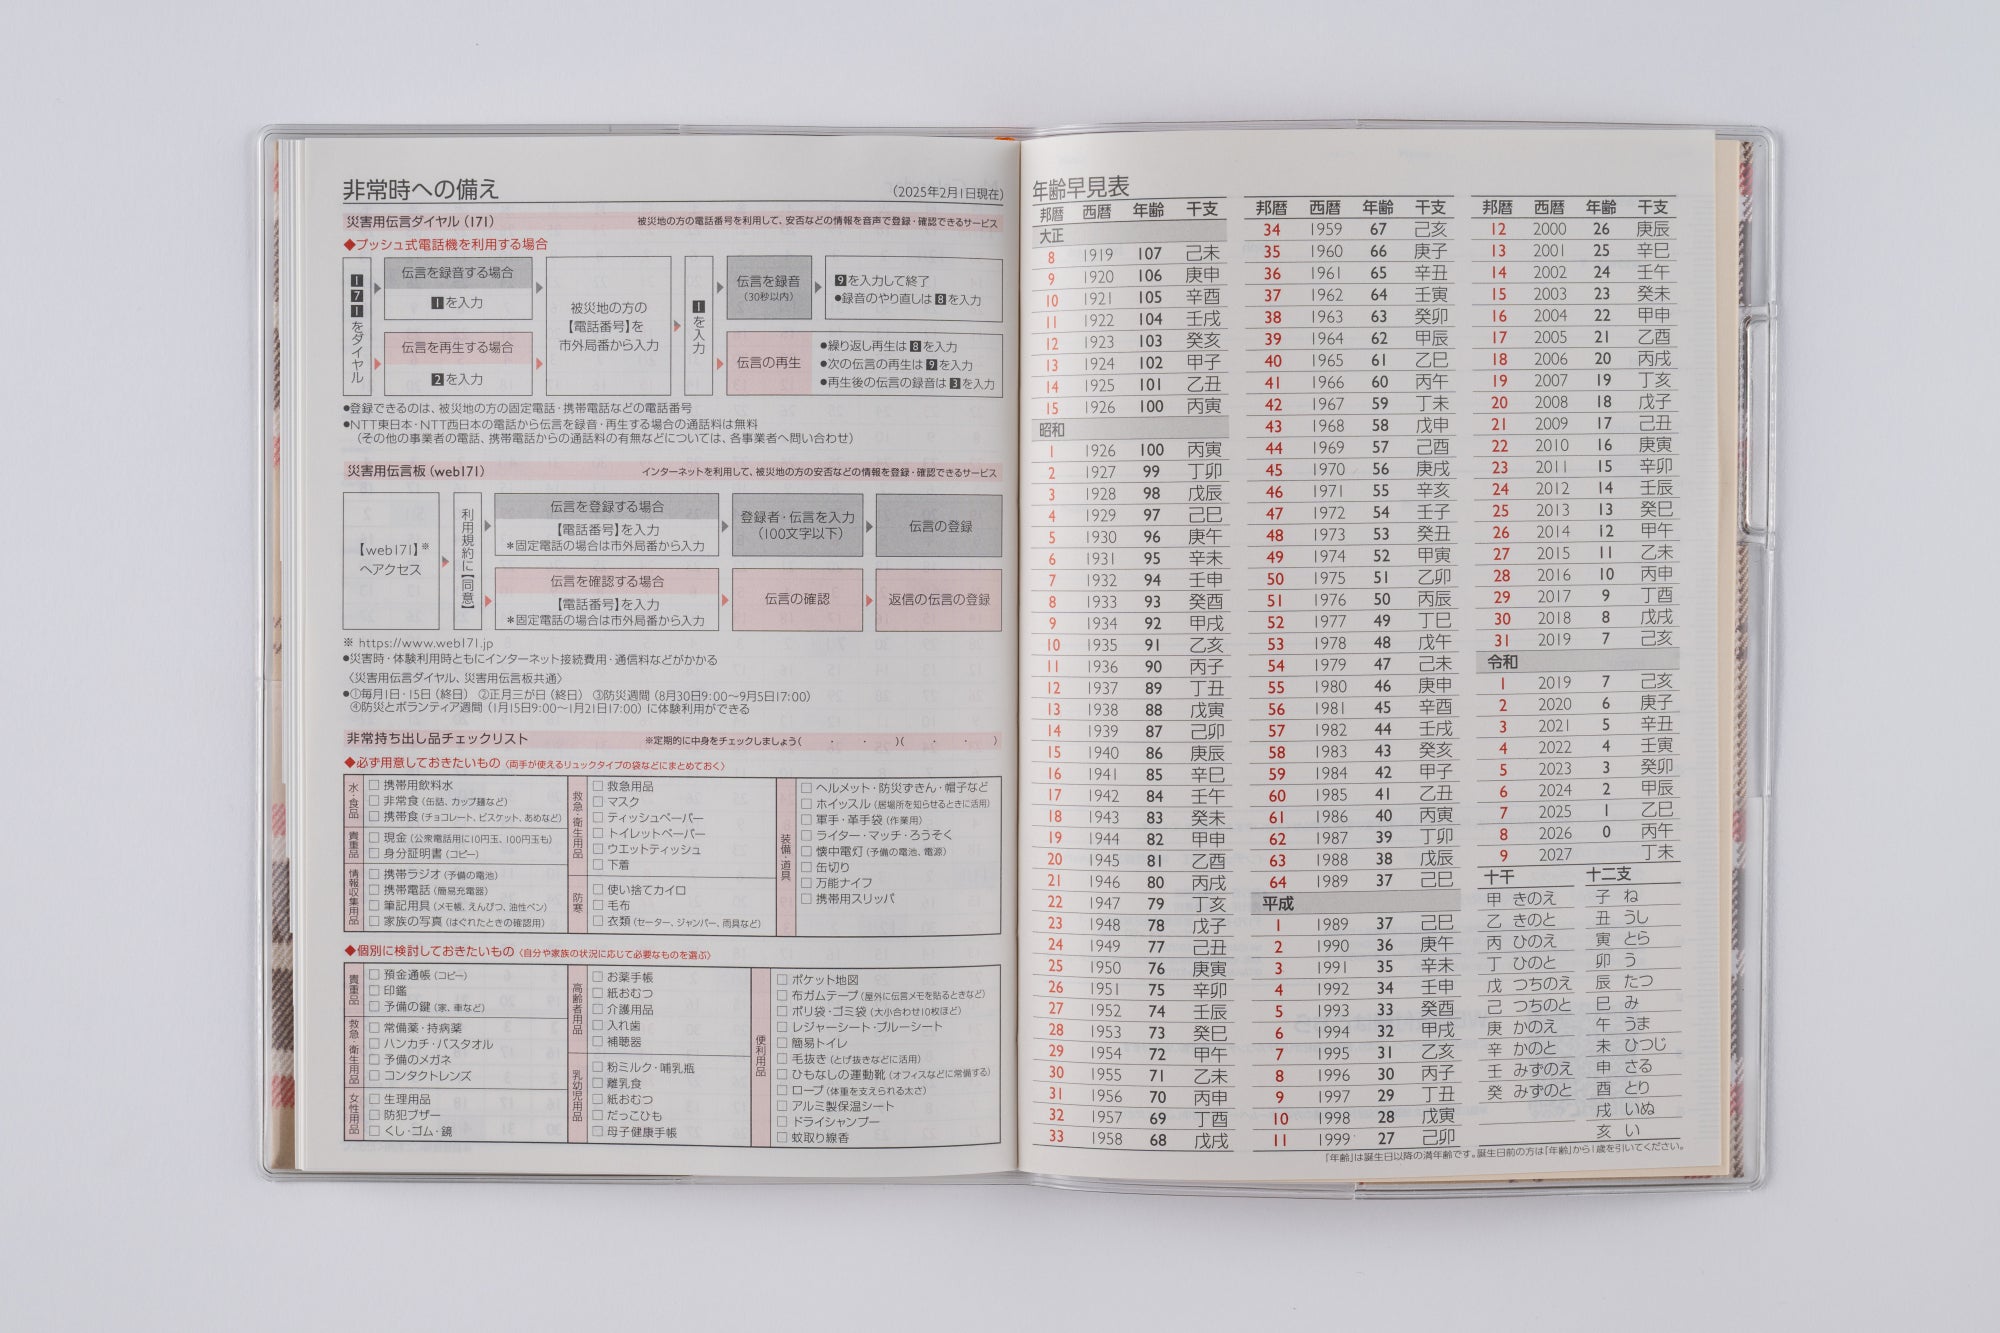 非常時への備え
(2025年2月1日現在)
災害用伝言ダイヤル (171)
被災地の方の電話番号を利用して、安否などの情報を音声で登録・確認できるサービス
◆プッシュ式電話機を利用する場合
171をダイヤル
伝言を録音する場合
1を入力
伝言を再生する場合
2を入力
被災地の方の
【電話番号】を
市外局番から入力
1を入力
伝言を録音
(30秒以内)
9を入力して終了
●録音のやり直しは8を入力
伝言の再生
●繰り返し再生は8を入力
●次の伝言の再生は9を入力
●再生後の伝言の録音は3を入力
●登録できるのは、被災地の方の固定電話・携帯電話などの電話番号
●NTT東日本・NTT西日本の電話から伝言を録音・再生する場合の通話料は無料
(その他の事業者の電話、携帯電話からの通話料の有無などについては、各事業者へ問い合わせ)
災害用伝言板 (web171)
インターネットを利用して、被災地の方の安否などの情報を登録・確認できるサービス
【web171】※
へアクセス
利用規約に【同意】
伝言を登録する場合
【電話番号】を入力
＊固定電話の場合は市外局番から入力
登録者・伝言を入力
(100文字以下)
伝言の登録
伝言を確認する場合
【電話番号】を入力
＊固定電話の場合は市外局番から入力
伝言の確認
返信の伝言の登録
※ https://www.web171.jp
●災害時・体験利用時ともにインターネット接続費用・通信料などがかかる
〈災害用伝言ダイヤル、災害用伝言板共通〉
●①毎月1日・15日 (終日) ②正月三が日 (終日) ③防災週間 (8月30日9:00〜9月5日17:00)
④防災とボランティア週間 (1月15日9:00〜1月21日17:00) に体験利用ができる
非常持ち出し品チェックリスト
※定期的に中身をチェックしましょう( ・ ・ )( ・ ・ )
◆必ず用意しておきたいもの 〈両手が使えるリュックタイプの袋などにまとめておく〉
水・食品
□ 携帯用飲料水
□ 非常食 (缶詰、カップ麺など)
□ 携帯食 (チョコレート、ビスケット、あめなど)
貴重品
□ 現金 (公衆電話用に10円玉、100円玉も)
□ 身分証明書 (コピー)
情報収集用品
□ 携帯ラジオ (予備の電池)
□ 携帯電話 (簡易充電器)
□ 筆記用具 (メモ帳、えんぴつ、油性ペン)
□ 家族の写真 (はぐれたときの確認用)
救急・衛生用品
□ 救急用品
□ マスク
□ ティッシュペーパー
□ トイレットペーパー
□ ウエットティッシュ
□ 下着
防寒
□ 使い捨てカイロ
□ 毛布
□ 衣類 (セーター、ジャンパー、雨具など)
装備・道具
□ ヘルメット・防災ずきん・帽子など
□ ホイッスル (居場所を知らせるときに活用)
□ 軍手・革手袋 (作業用)
□ ライター・マッチ・ろうそく
□ 懐中電灯 (予備の電池、電源)
□ 缶切り
□ 万能ナイフ
□ 携帯用スリッパ
◆個別に検討しておきたいもの 〈自分や家族の状況に応じて必要なものを選ぶ〉
貴重品
□ 預金通帳 (コピー)
□ 印鑑
□ 予備の鍵 (家、車など)
救急・衛生用品
□ 常備薬・持病薬
□ ハンカチ・バスタオル
□ 予備のメガネ
□ コンタクトレンズ
女性用品
□ 生理用品
□ 防犯ブザー
□ くし・ゴム・鏡
高齢者用品
□ お薬手帳
□ 紙おむつ
□ 介護用品
□ 入れ歯
□ 補聴器
乳幼児用品
□ 粉ミルク・哺乳瓶
□ 離乳食
□ 紙おむつ
□ だっこひも
□ 母子健康手帳
便利用品
□ ポケット地図
□ 布ガムテープ (屋外に伝言メモを貼るときなど)
□ ポリ袋・ゴミ袋 (大小合わせ10枚ほど)
□ レジャーシート・ブルーシート
□ 簡易トイレ
□ 毛抜き (とげ抜きなどに活用)
□ ひもなしの運動靴 (オフィスなどに常備する)
□ ロープ (体重を支えられる太さ)
□ アルミ製保温シート
□ ドライシャンプー
□ 蚊取り線香
年齢早見表
邦暦 西暦 年齢 干支
大正
8 1919 107 己未
9 1920 106 庚申
10 1921 105 辛酉
11 1922 104 壬戌
12 1923 103 癸亥
13 1924 102 甲子
14 1925 101 乙丑
15 1926 100 丙寅
昭和
1 1926 100 丙寅
2 1927 99 丁卯
3 1928 98 戊辰
4 1929 97 己巳
5 1930 96 庚午
6 1931 95 辛未
7 1932 94 壬申
8 1933 93 癸酉
9 1934 92 甲戌
10 1935 91 乙亥
11 1936 90 丙子
12 1937 89 丁丑
13 1938 88 戊寅
14 1939 87 己卯
15 1940 86 庚辰
16 1941 85 辛巳
17 1942 84 壬午
18 1943 83 癸未
19 1944 82 甲申
20 1945 81 乙酉
21 1946 80 丙戌
22 1947 79 丁亥
23 1948 78 戊子
24 1949 77 己丑
25 1950 76 庚寅
26 1951 75 辛卯
27 1952 74 壬辰
28 1953 73 癸巳
29 1954 72 甲午
30 1955 71 乙未
31 1956 70 丙申
32 1957 69 丁酉
33 1958 68 戊戌
邦暦 西暦 年齢 干支
34 1959 67 己亥
35 1960 66 庚子
36 1961 65 辛丑
37 1962 64 壬寅
38 1963 63 癸卯
39 1964 62 甲辰
40 1965 61 乙巳
41 1966 60 丙午
42 1967 59 丁未
43 1968 58 戊申
44 1969 57 己酉
45 1970 56 庚戌
46 1971 55 辛亥
47 1972 54 壬子
48 1973 53 癸丑
49 1974 52 甲寅
50 1975 51 乙卯
51 1976 50 丙辰
52 1977 49 丁巳
53 1978 48 戊午
54 1979 47 己未
55 1980 46 庚申
56 1981 45 辛酉
57 1982 44 壬戌
58 1983 43 癸亥
59 1984 42 甲子
60 1985 41 乙丑
61 1986 40 丙寅
62 1987 39 丁卯
63 1988 38 戊辰
64 1989 37 己巳
平成
1 1989 37 己巳
2 1990 36 庚午
3 1991 35 辛未
4 1992 34 壬申
5 1993 33 癸酉
6 1994 32 甲戌
7 1995 31 乙亥
8 1996 30 丙子
9 1997 29 丁丑
10 1998 28 戊寅
11 1999 27 己卯
邦暦 西暦 年齢 干支
12 2000 26 庚辰
13 2001 25 辛巳
14 2002 24 壬午
15 2003 23 癸未
16 2004 22 甲申
17 2005 21 乙酉
18 2006 20 丙戌
19 2007 19 丁亥
20 2008 18 戊子
21 2009 17 己丑
22 2010 16 庚寅
23 2011 15 辛卯
24 2012 14 壬辰
25 2013 13 癸巳
26 2014 12 甲午
27 2015 11 乙未
28 2016 10 丙申
29 2017 9 丁酉
30 2018 8 戊戌
31 2019 7 己亥
令和
1 2019 7 己亥
2 2020 6 庚子
3 2021 5 辛丑
4 2022 4 壬寅
5 2023 3 癸卯
6 2024 2 甲辰
7 2025 1 乙巳
8 2026 0 丙午
9 2027 丁未
十干
甲 きのえ
乙 きのと
丙 ひのえ
丁 ひのと
戊 つちのえ
己 つちのと
庚 かのえ
辛 かのと
壬 みずのえ
癸 みずのと
十二支
子 ね
丑 うし
寅 とら
卯 う
辰 たつ
巳 み
午 うま
未 ひつじ
申 さる
酉 とり
戌 いぬ
亥 い
「年齢」は誕生日以降の満年齢です。誕生日前の方は「年齢」から1歳を引いてください。